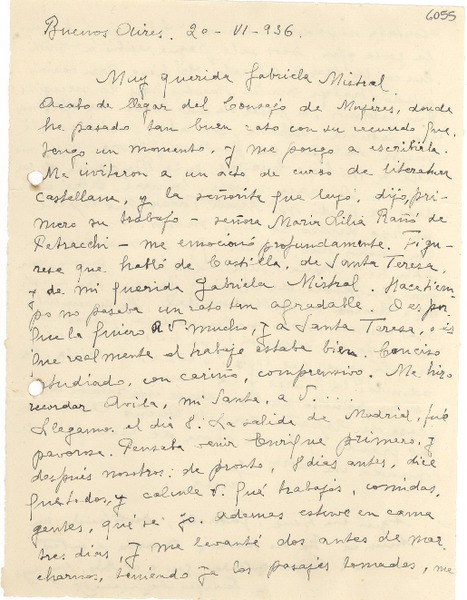 6055
Buenos Aires. 20-VI-936.
Muy querida Gabriela Mistral.
Acabo de llegar del Consejo de Mujeres, donde
he pasado tan buen rato con su recuerdo que
tengo un momento, y me pongo a escribirla.
Me invitaron a un acto de curso de literatura
castellana, y la señorita que leyó, dijo, pri-
mero su trabajo - señora Maria Lilia Rañó de
Petracchi - me emocionó profundamente. Figu-
rese que habló de Castilla, de Santa Teresa,
y de mi querida Gabriela Mistral. Hace tiem-
po no pasaba un rato tan agradable. O es por
que la quiero a V. mucho, y a Santa Teresa, o es
que realmente el trabajo estaba bien. Conciso
estudiado, con cariño, comprensivo. Me hizo
recordar Avila, mi Santa, a V. ...
Llegamos el dia 8. La salida de Madrid, fué
pavorosa. Pensaba venir Enrique primero, y
después nosotros: de pronto, 8 dias antes, dice
que todos, y calcule V. qué trabajos, comidas,
gentes, qué sé yo. Ademas estuve en cama
tres dias, y me levanté dos antes de mar-
charnos, teniendo ya los pasajes tomados, me